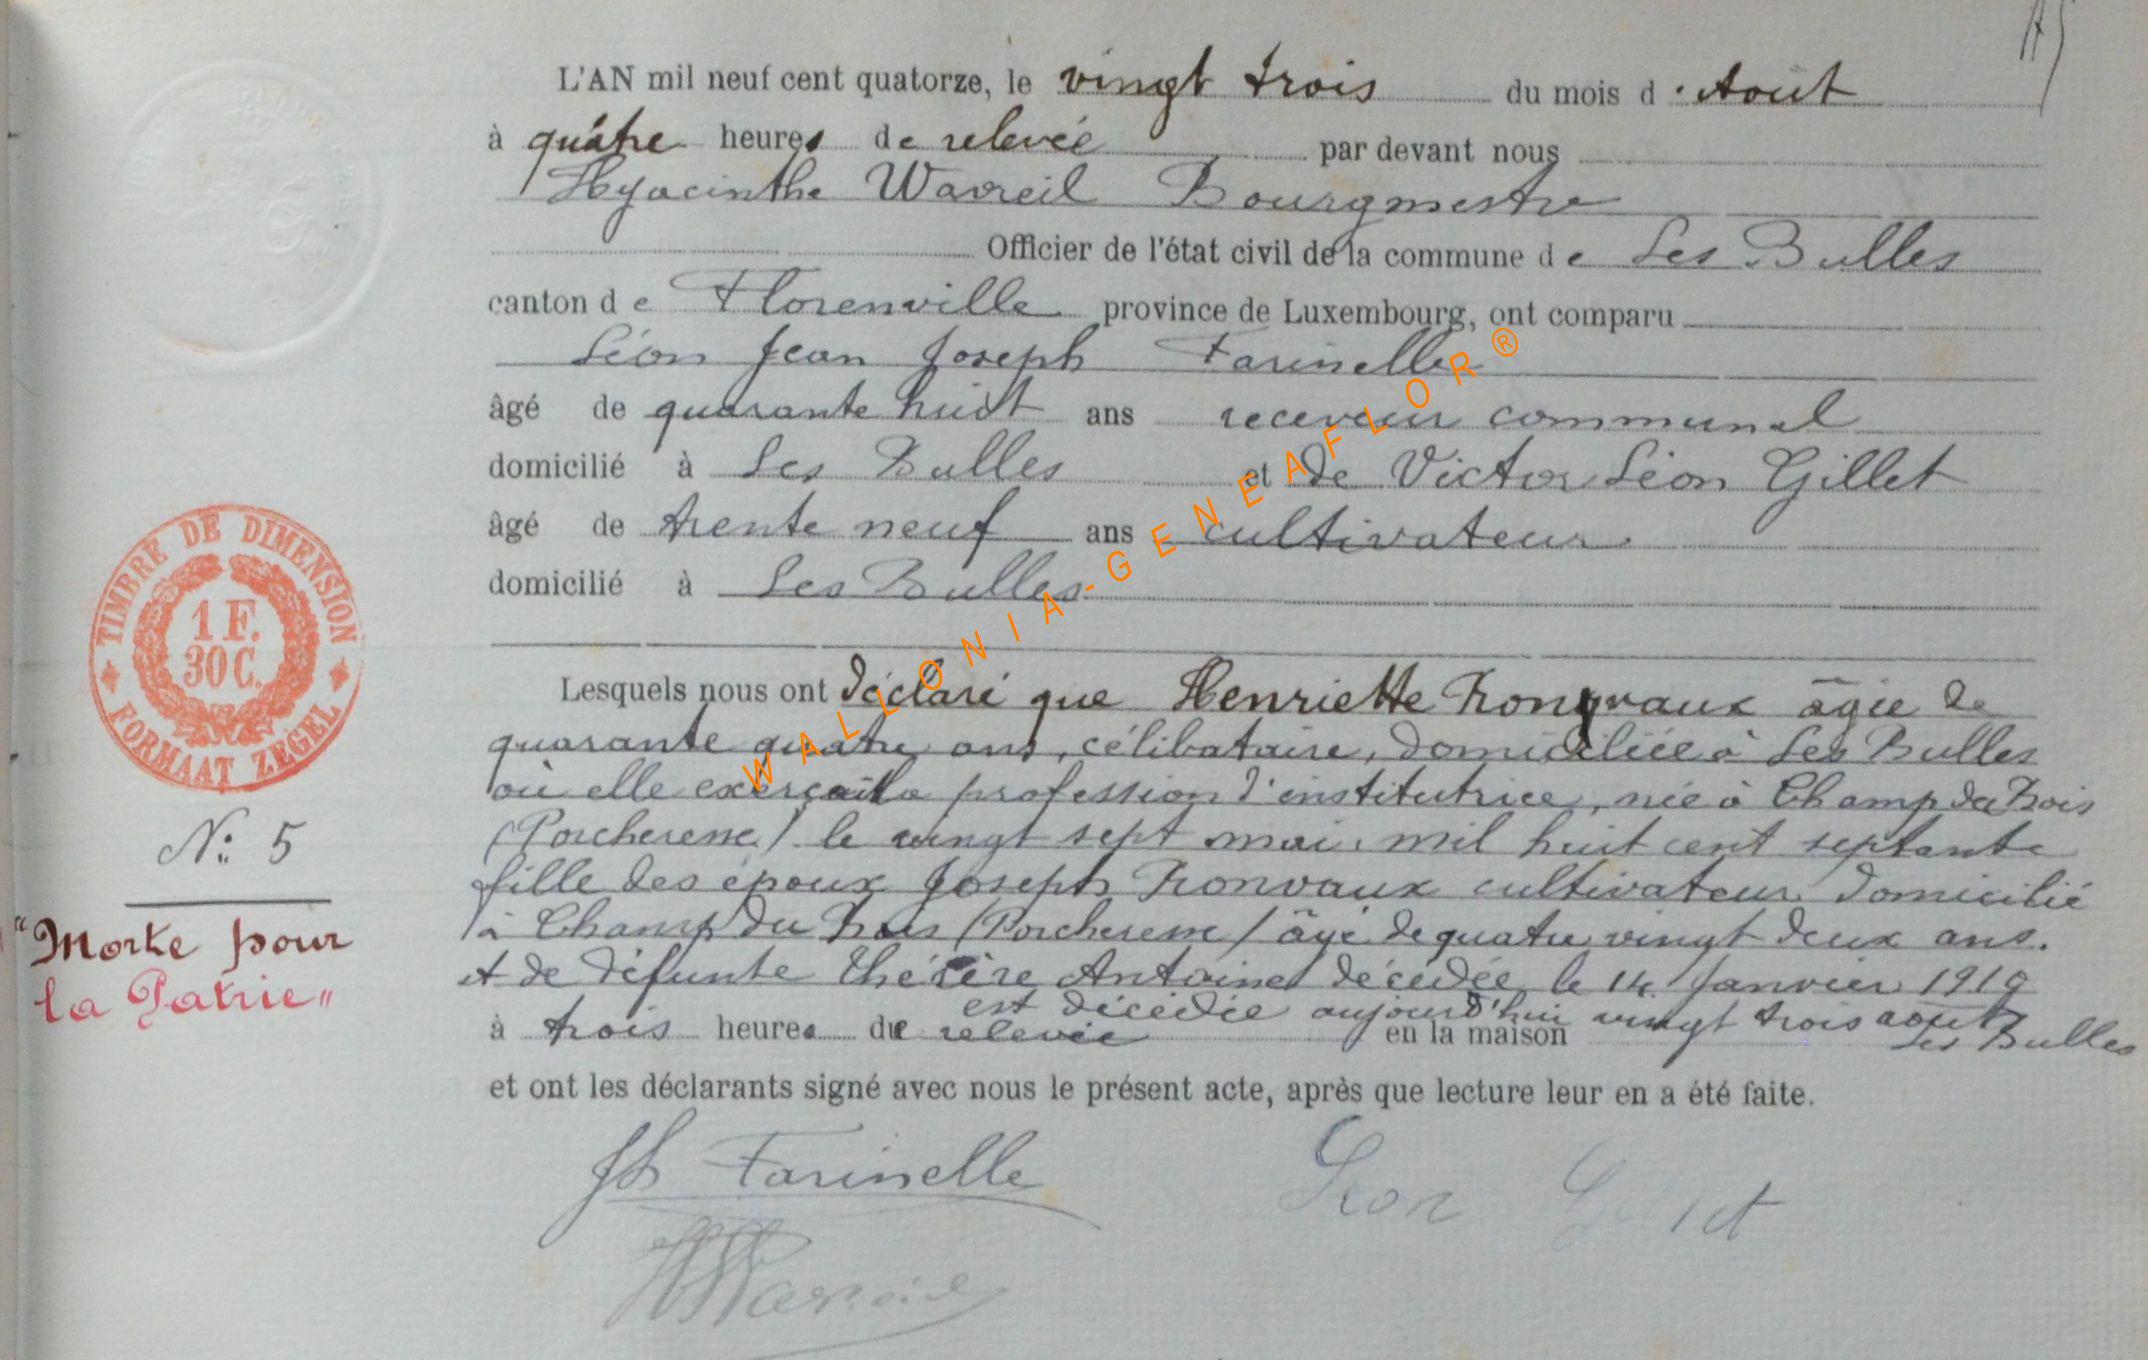 L'AN mil neuf cent quatorze, le vingt trois du mois d'Août
à quatre heures de relevée par devant nous
Hyacinthe Wavreil Bourgmestre
Officier de l'état civil de la commune de Les Bulles
canton de Florenville province de Luxembourg, ont comparu
Léon Jean Joseph Farinelle
âgé de quarante huit ans receveur communal
domicilié à Les Bulles et de Victor Léon Gillet
âgé de trente neuf ans cultivateur
domicilié à Les Bulles
WALLONIA-GENEAFLOR®
TIMBRE DE DIMENSION
1 F.
30 C.
FORMAAT ZEGEL
Lesquels nous ont déclaré que Henriette Rongvaux âgée de
quarante quatre ans, célibataire, domiciliée à Les Bulles
où elle exerçait la profession d'institutrice, née à Champ du Bois
(Porcheresse) le vingt sept mai mil huit cent septante
fille des époux Joseph Ronvaux cultivateur domicilié
à Champ du Bois (Porcheresse) âgé de quatre vingt deux ans.
et de défunte Thérère Antoine décédée le 14 Janvier 1910
est décédée aujourd'hui vingt trois août
à trois heures de relevée en la maison Les Bulles
et ont les déclarants signé avec nous le présent acte, après que lecture leur en a été faite.
N: 5
"Morte pour
la Patrie"
Jh Farinelle
Léon Gillet
HWavreil